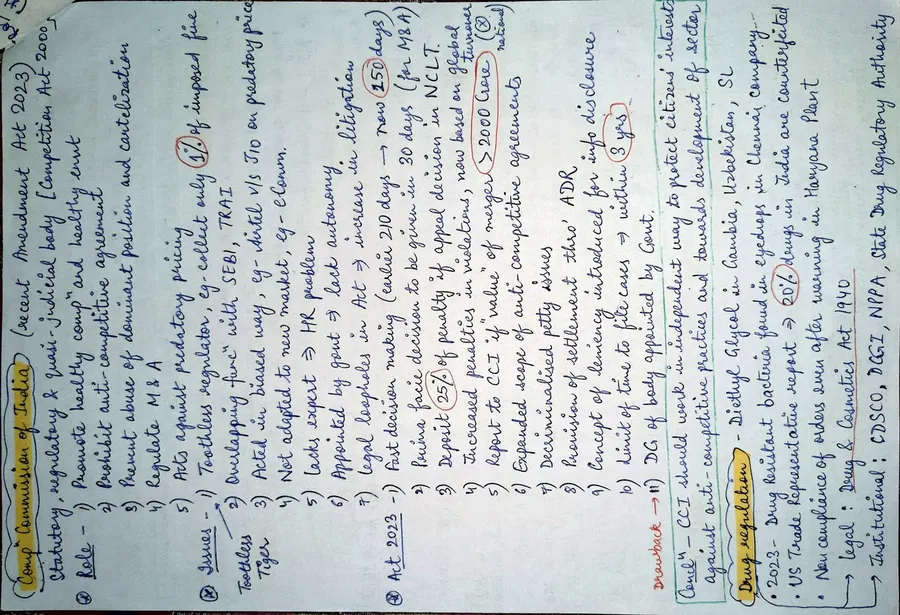 Compⁿ Commission of India (recent Amendment Act 2023)
Statutory, regulatory & quasi-Judicial body [Competition Act 2000
Role - 1) Promote healthy compⁿ and healthy envt
2) Prohibit anti-competitive agreement
3) Prevent abuse of dominant position and cartelization
4) Regulate M & A
5) Acts against predatory pricing
Issues - 1) Toothless regulator, eg- collect only 1% of imposed fine
Toothless Tiger
2) Overlapping funcⁿ with SEBI, TRAI
3) Acted in biased way, eg- Airtel v/s JIO on predatory price
4) Not adapted to new market, eg- eComm.
5) Lacks expert ⇒ HR problem
6) Appointed by govt ⇒ lack autonomy
7) Legal loopholes in Act ⇒ increase in litigation
Act 2023 - 1) Fast decision making (earlier 210 days → now 150 days)
2) Prima facie decision to be given in 30 days (for M&A)
3) Deposit 25% of penalty if appeal decision in NCLT.
4) Increased penalties in violations, now based on global turnover
5) Report to CCI if "value" of merger > 2000 Crore (national)
6) Expanded scope of anti-competitive agreements
7) Decriminalised petty issues
8) Provision of settlement thro' ADR
9) Concept of leniency introduced for info disclosure
10) Limit of time to file cases ⇒ within 3 yrs
Drawback → 11) DG of body appointed by Govt.
Concⁿ - CCI should work in independent way to protect citizens interest
against anti-competitive practices and towards development of sector
Drug regulation - Diethyl Glycol in Gambia, Uzbekistan, SL
• 2023 - Drug Resistant bacteria found in eyedrops in Chennai company
US Trade Representative report ⇒ 20% drugs in India are counterfeited
• Non compliance of orders even after warning in Haryana Plant
→ Legal : Drug & Cosmetics Act 1940
→ Institutional : CDSCO, DCGI, NPPA, State Drug Regulatory Authority